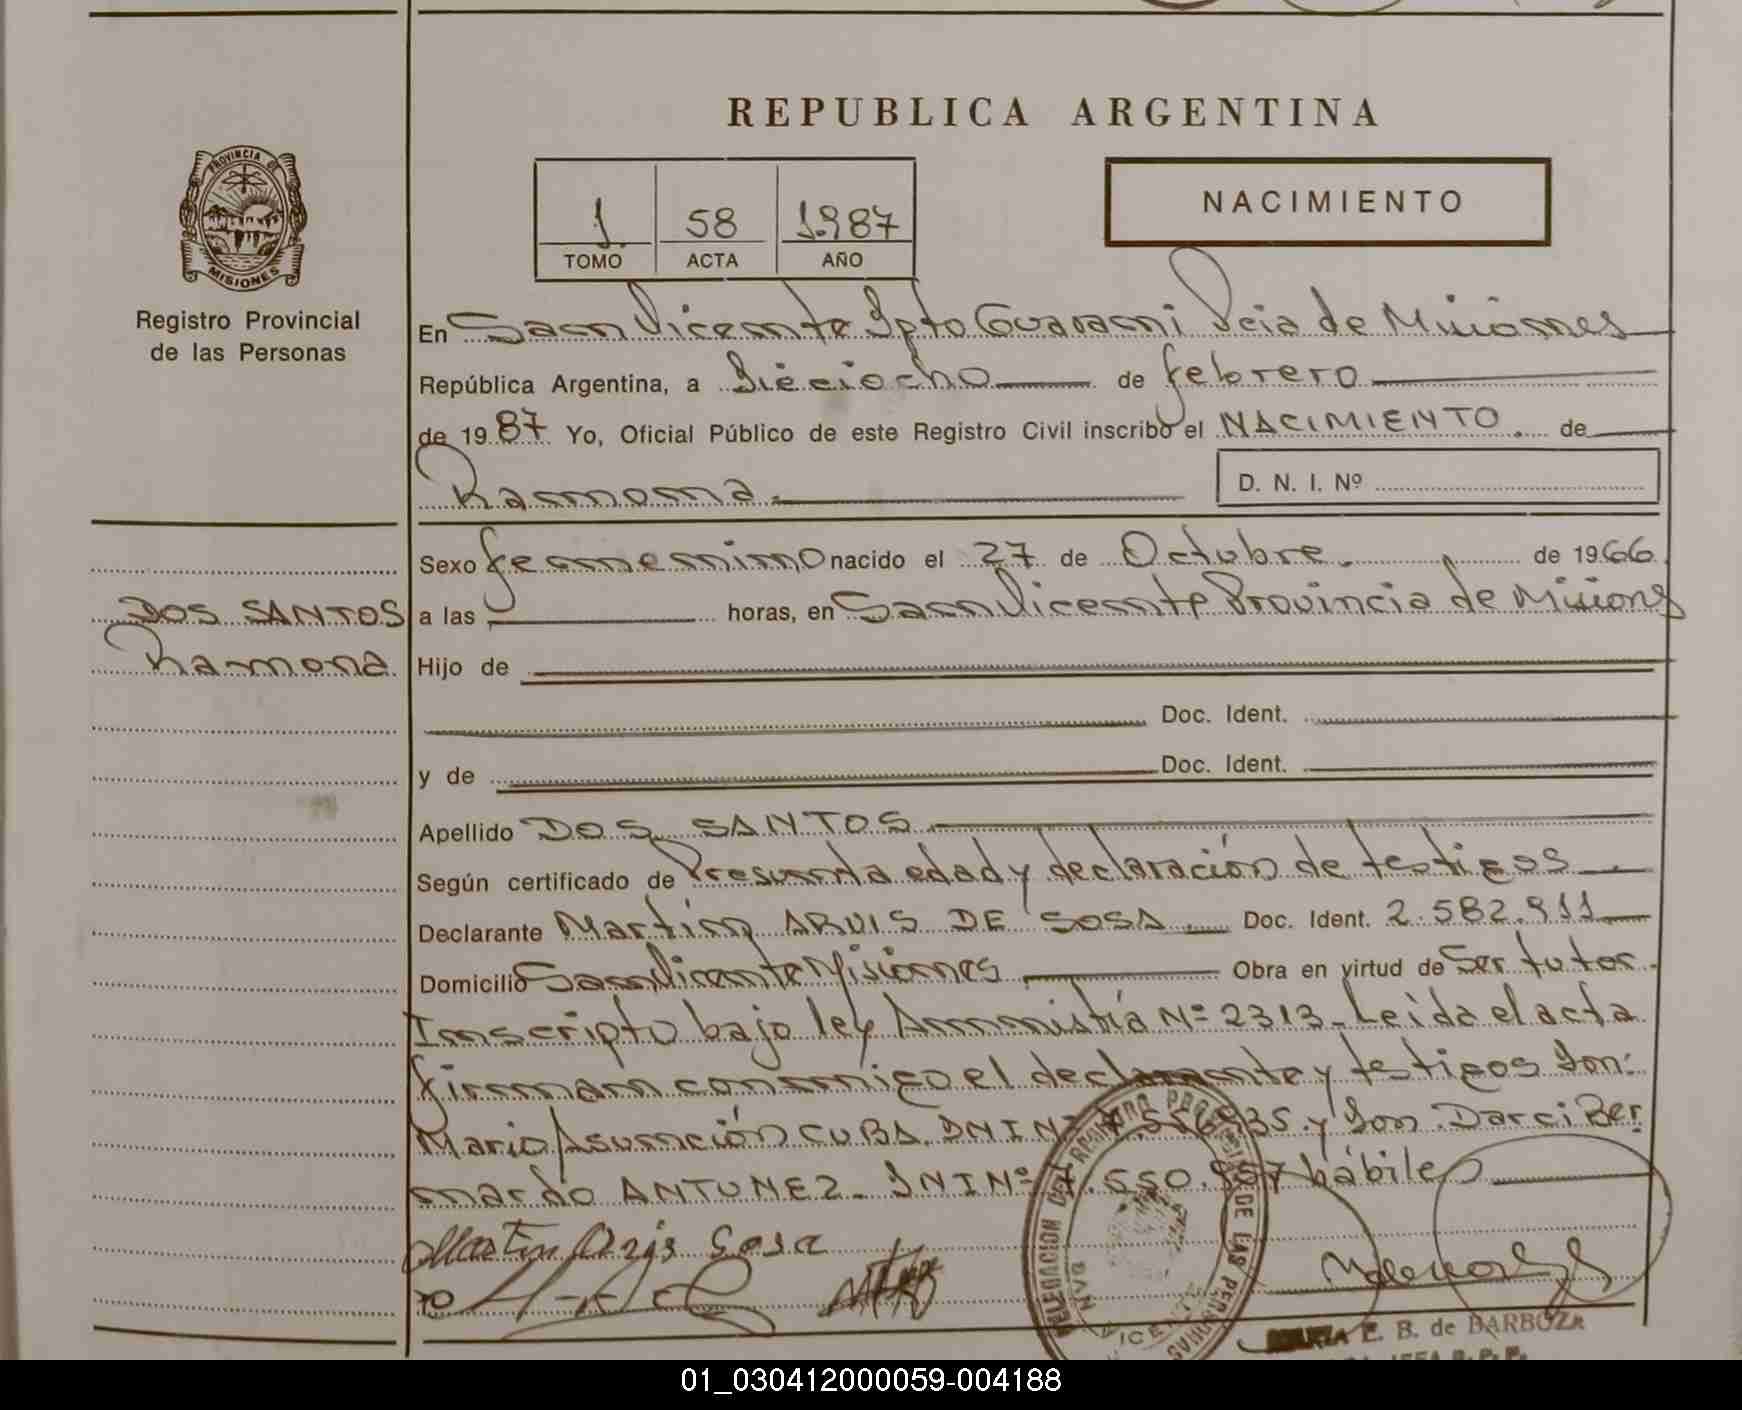 REPUBLICA ARGENTINA
PROVINCIA DE
MISIONES
Registro Provincial
de las Personas
1 58 1987
TOMO ACTA AÑO
NACIMIENTO
En San Vicente Dpto Guarani Pcia de Misiones
República Argentina, a Dieciocho de febrero
de 1987 Yo, Oficial Público de este Registro Civil inscribo el NACIMIENTO de
Ramona.
D. N. I. Nº
Sexo femenino nacido el 27 de Octubre. de 1966
DOS SANTOS
Ramona
a las horas, en San Vicente Provincia de Misiones
Hijo de
Doc. Ident.
y de Doc. Ident.
Apellido DOS SANTOS
Según certificado de Presunta edad y declaración de testigos
Declarante Martin ARUIS DE SOSA Doc. Ident. 2.582.911
Domicilio San Vicente Misiones Obra en virtud de Ser tutor.
Inscripto bajo ley Amnistía Nº 2313. Leida el acta
firman conmigo el declarante y testigos Don:
Mario Asunción CUBA DNI Nº y Don. Darci Ber
nardo ANTUNEZ. DNI Nº 7.550.557 hábiles
Martin Sosa
REGISTRO PROVINCIAL DE LAS PERSONAS
SAN VICENTE
MARTA E. B. de BARBOZA
01_030412000059-004188